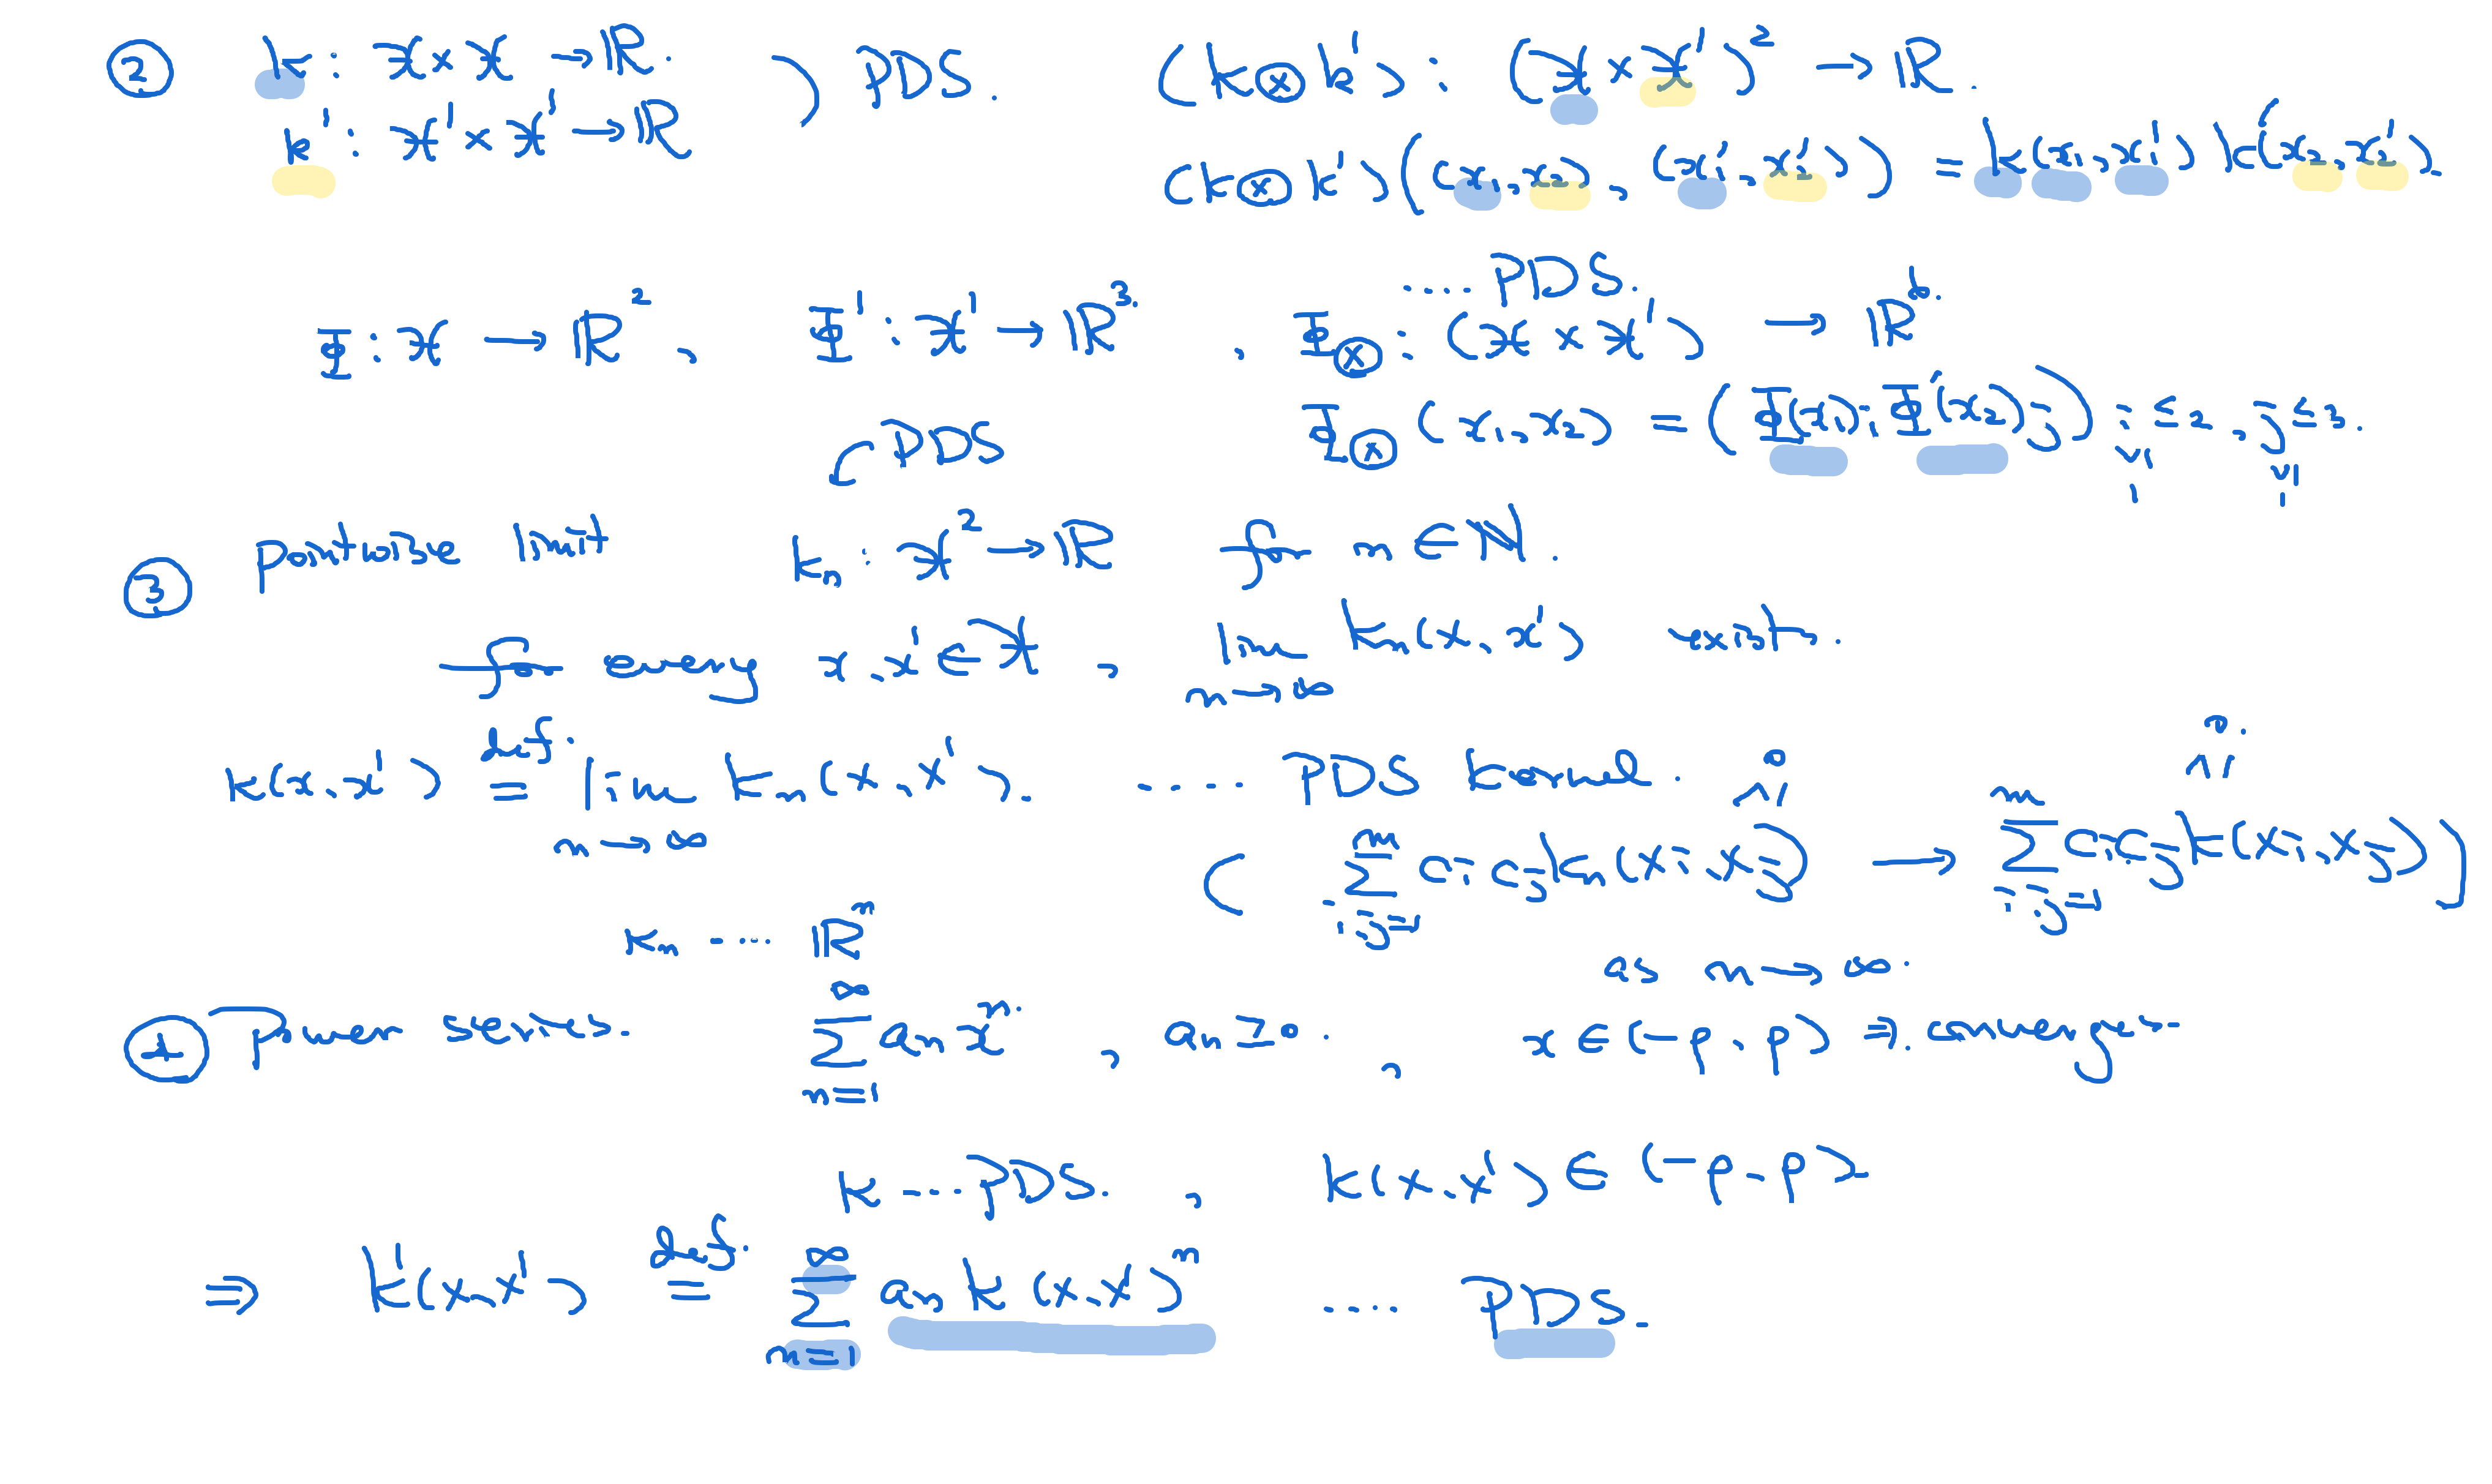 ② k : X × X → ℝ. ) PDS. (k ⊗ k') : (X × X')² → ℝ.
k' : X' × X' → ℝ
(k ⊗ k')((x₁, x₂), (x₁', x₂')) = k(x₁, x₁') k'(x₂, x₂').
.... PDS.
Φ : X → ℝ², Φ' : X' → ℝ³. . Φ⊗ : (X × X') → ℝ⁶.
Φ⊗ (x₁, x₂) = (Φ(x₁)ᵢ Φ'(x₂)ⱼ) : i ≤ 2, j ≤ 3.
PDS
③ pointwise limit kₙ : X² → ℝ for n ∈ ℕ.
for every x, x' ∈ X, lim n→∞ kₙ(x, x') exists.
k(x, x') def. = lim n→∞ kₙ(x, x'). .... PDS kernel.
( Σ i,j=1 m cᵢ cⱼ kₙ(xᵢ, xⱼ) ≥ 0 → Σ i,j=1 m cᵢ cⱼ k(xᵢ, xⱼ) ≥ 0. )
as n→∞.
kₙ .... ℝⁿ
④ Power series. Σ n=1 ∞ aₙ xⁿ. , aₙ ≥ 0. , x ∈ (-ρ, ρ) ⇒ converge
k .... PDS. , k(x, x') ∈ (-ρ, ρ).
⇒ k'(x, x') def. = Σ n=1 ∞ aₙ k(x, x')ⁿ .... PDS.